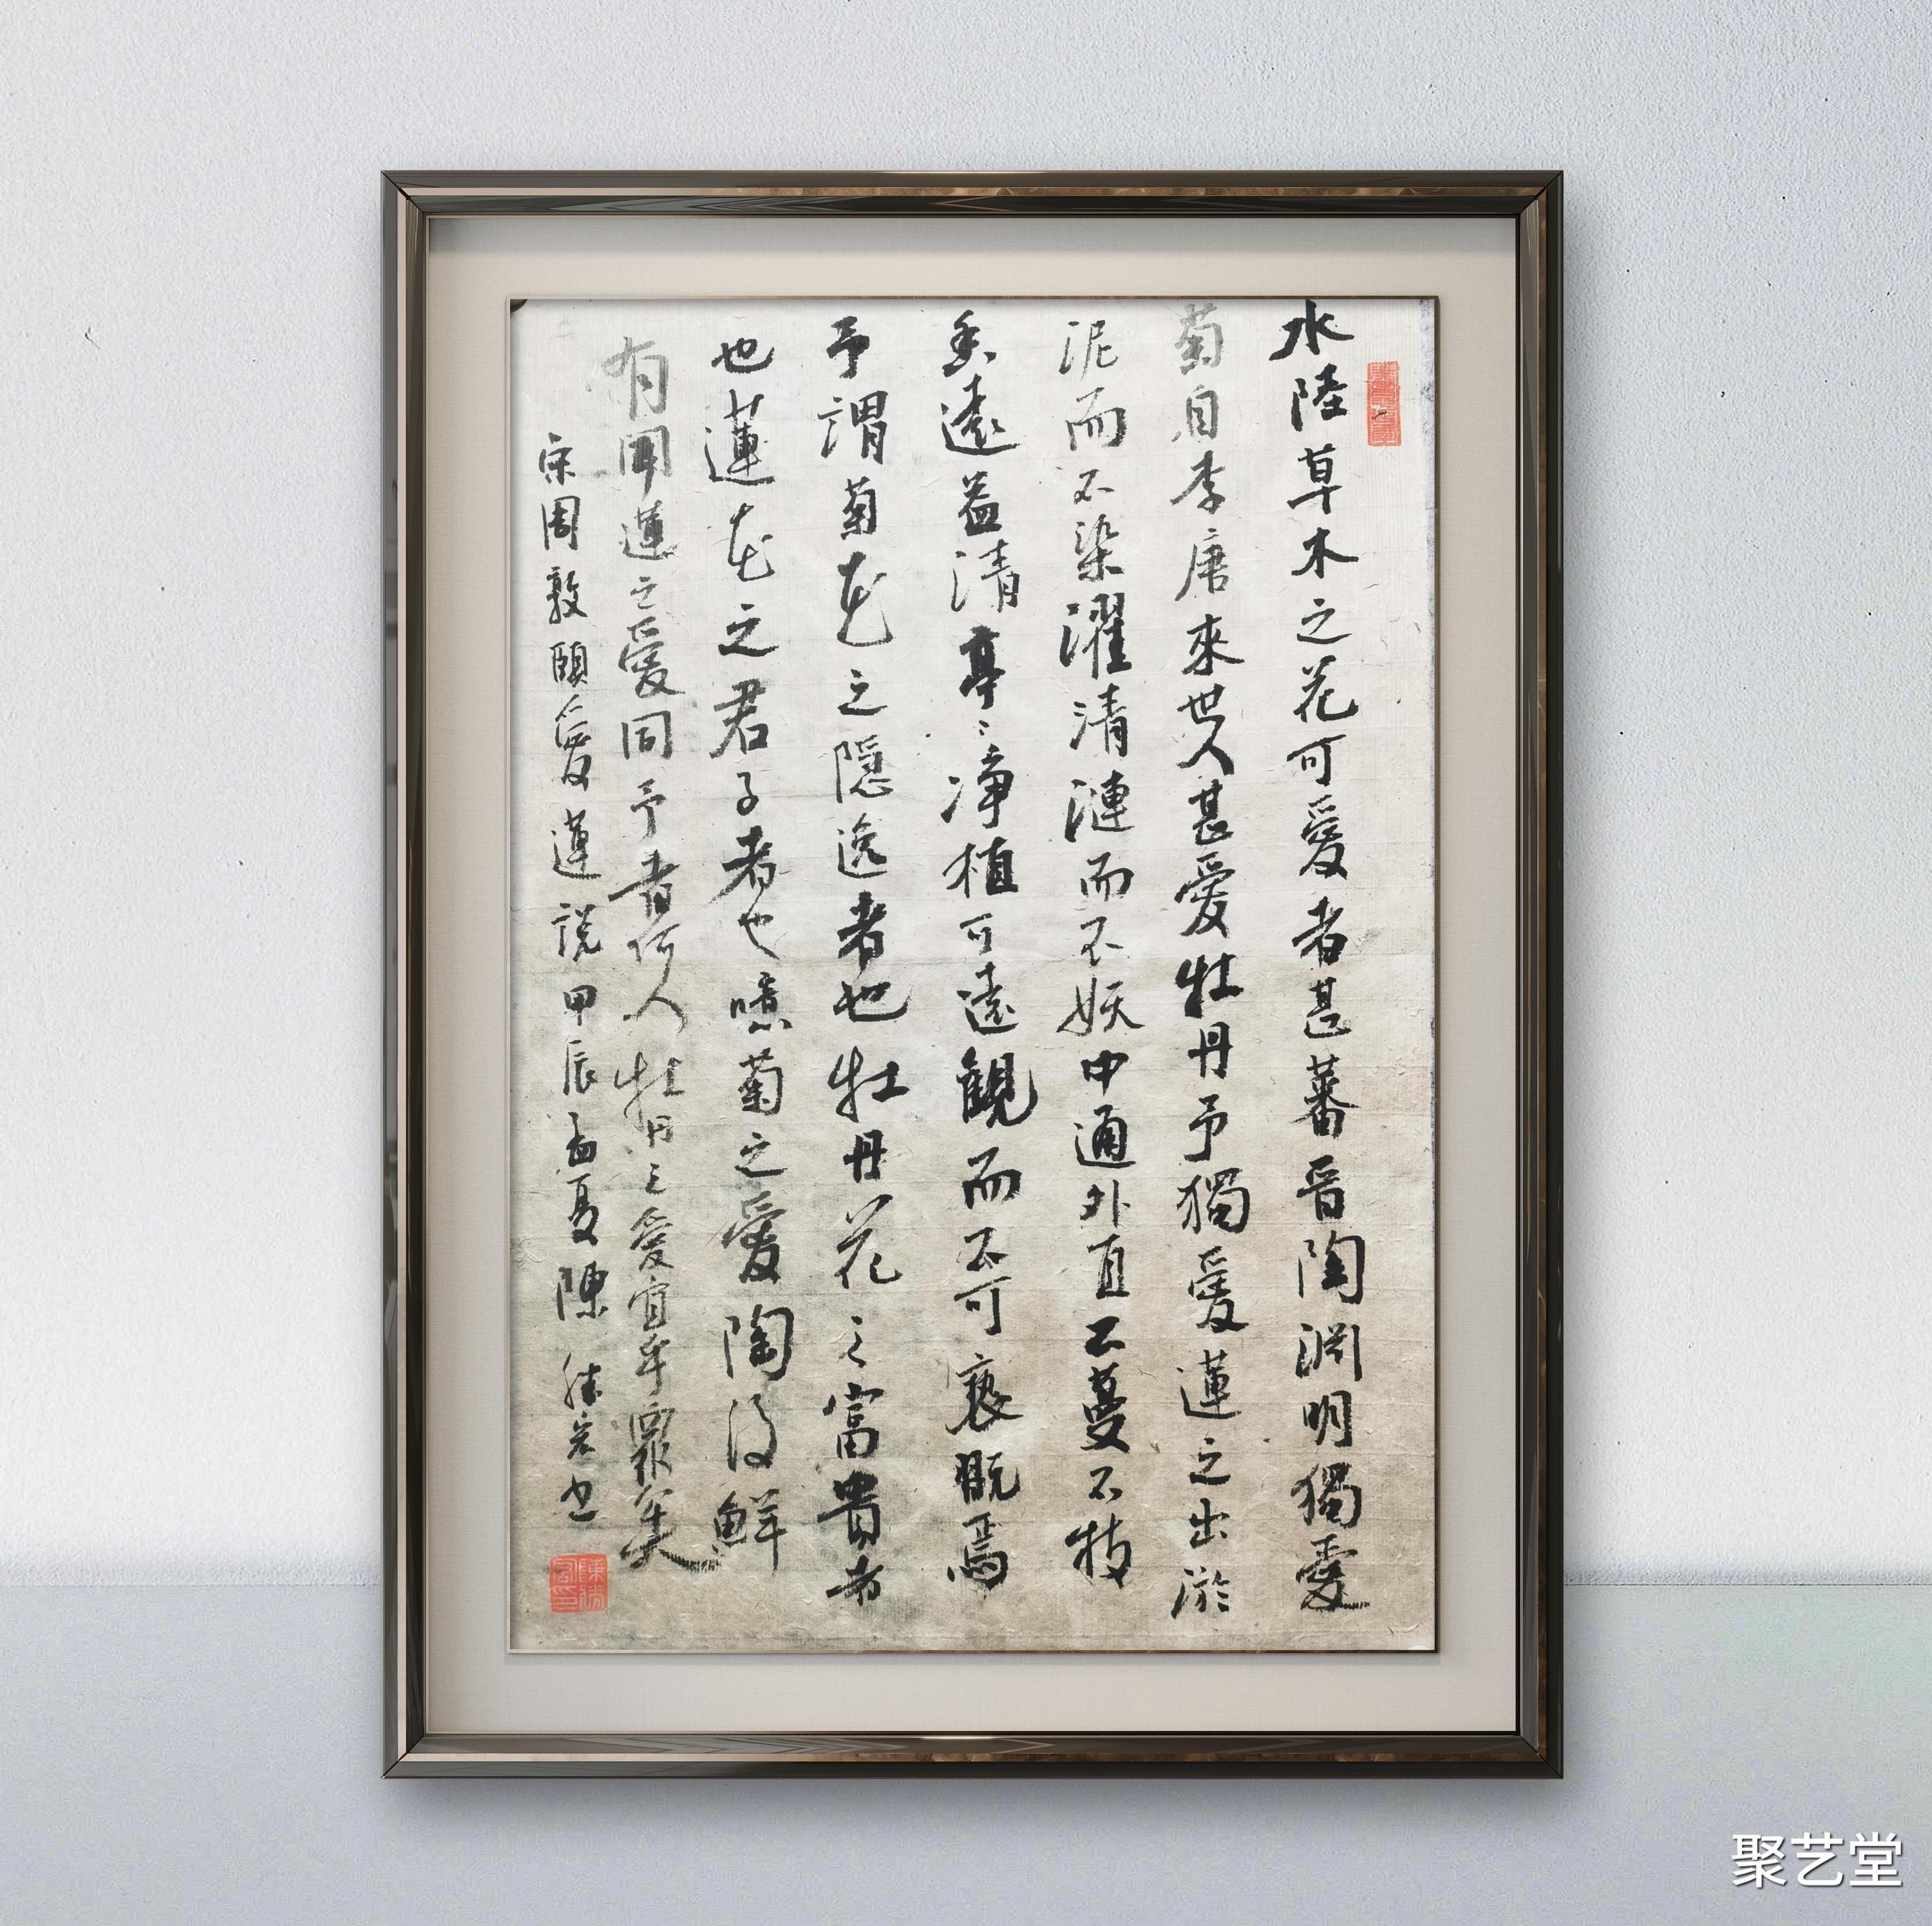 水陸草木之花可愛者甚蕃晋陶渊明獨愛
菊自李唐來世人甚愛牡丹予獨愛蓮之出淤
泥而不染濯清漣而不妖中通外直不蔓不枝
香遠益清亭〻净植可遠觀而不可褻翫焉
予謂菊花之隱逸者也牡丹花之富貴者
也蓮花之君子者也噫菊之愛陶後鮮
有聞蓮之愛同予者何人牡丹之愛宜乎眾矣
宋周敦頤愛蓮說甲辰孟夏陳勝宏書
聚艺堂